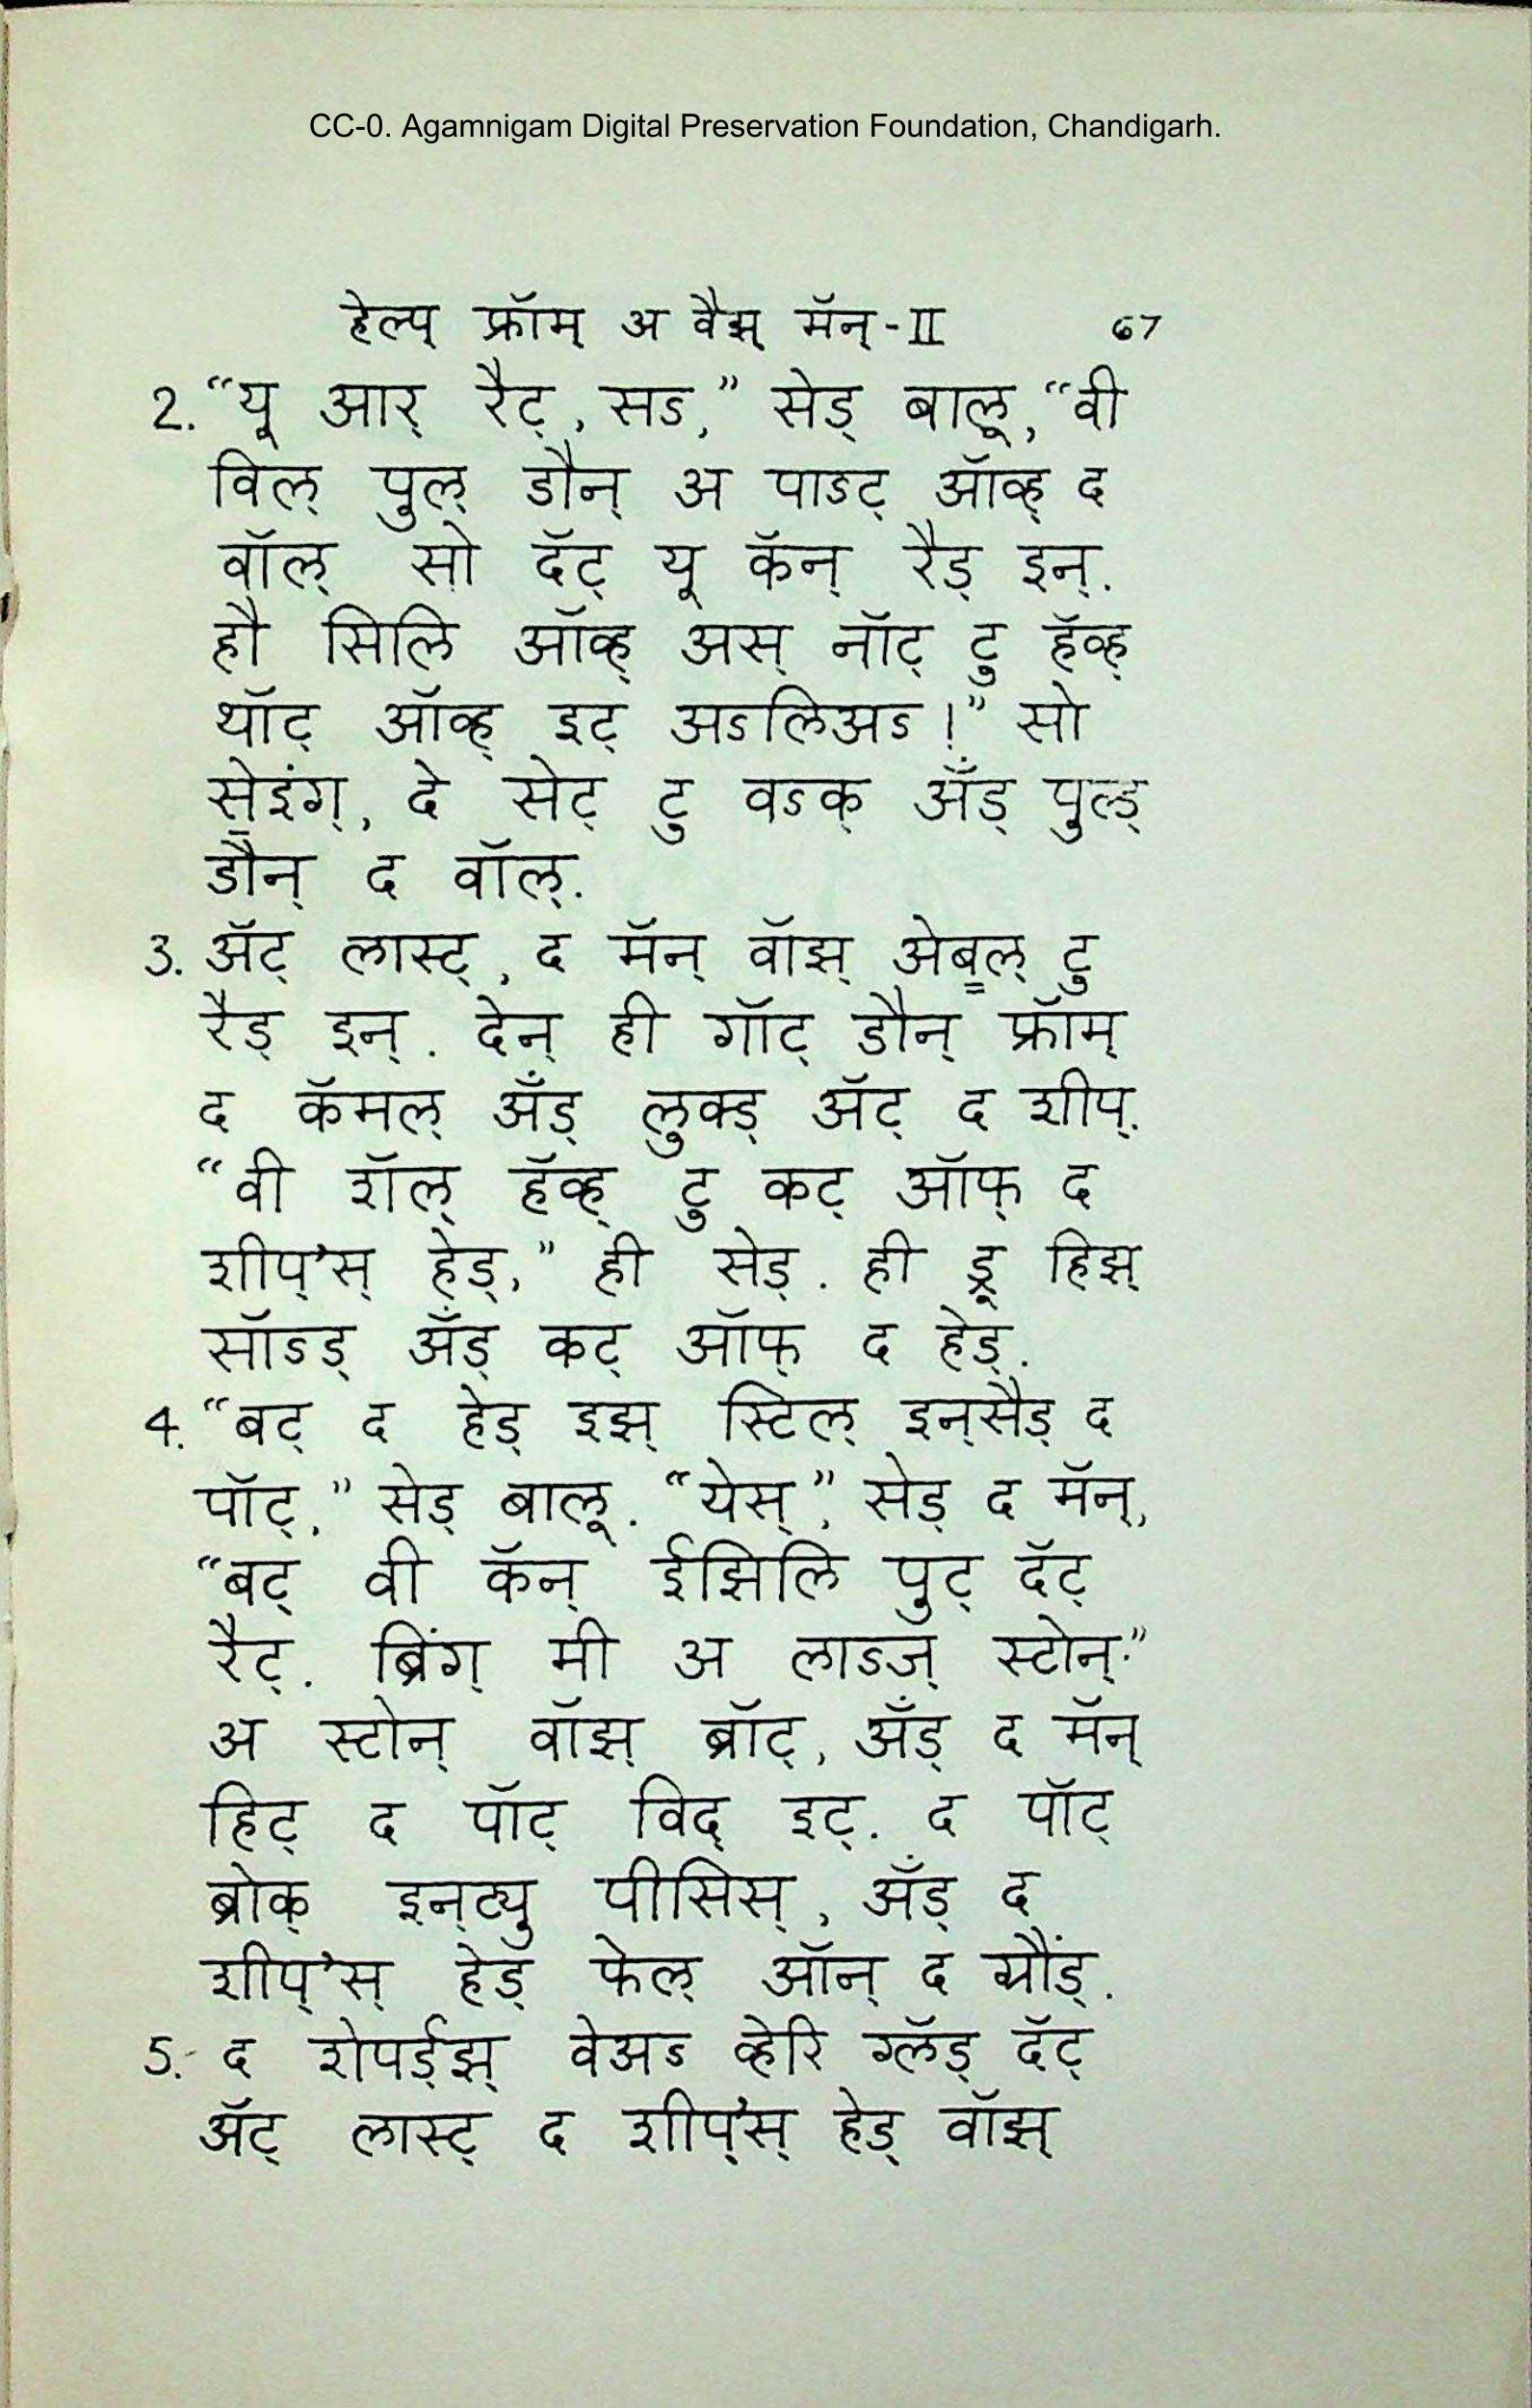 CC-0. Agamnigam Digital Preservation Foundation, Chandigarh.
हेल्प् फ्रॉम् अ वैझ् मॅन्-II 67
2. “यू आर् रैट्, सऽ,” सेड् बालू, “वी
विल् पुल् डौन् अ पाऽट् ऑव्ह् द
वॉल् सो दॅट् यू कॅन् रैड् इन्.
हौ सिलि ऑव्ह् अस् नॉट् टु हॅव्ह्
थॉट् ऑव्ह् इट् अऽलिअऽ!” सो
से॒इंग्, दे सेट् टु वऽक् अँड् पुल्ड्
डौन् द वॉल्.
3. ॲट् लास्ट्, द मॅन् वॉझ् अेबू॒ल् टु
रैड् इन्. देन् ही गॉट् डौन् फ्रॉम्
द कॅमल् अँड् लुक्ड् ॲट् द शीप्.
“वी शॅल् हॅव्ह् टु कट् ऑफ् द
शीप्’स् हेड्,” ही सेड्. ही ड्रू हिझ्
सॉऽड् अँड् कट् ऑफ् द हेड्.
4. “बट् द हेड् इझ् स्टिल् इन्‌सैड् द
पॉट्,” सेड् बालू. “येस्”, सेड् द मॅन्,
“बट् वी कॅन् ईझिलि पुट् दॅट्
रैट्. ब्रिंग् मी अ लाऽज् स्टोन्.”
अ स्टोन् वॉझ् ब्रॉट्, अँड् द मॅन्
हिट् द पॉट् विद् इट्. द पॉट्
ब्रोक् इन्‌ट्यु पीसिस्, अँड् द
शीप्’स् हेड् फेल् ऑन् द ग्रौंड्.
5. द शेपर्ड्झ् वेअऽ व्हेरि ग्लॅड् दॅट्
ॲट् लास्ट् द शीप्’स् हेड् वॉझ्